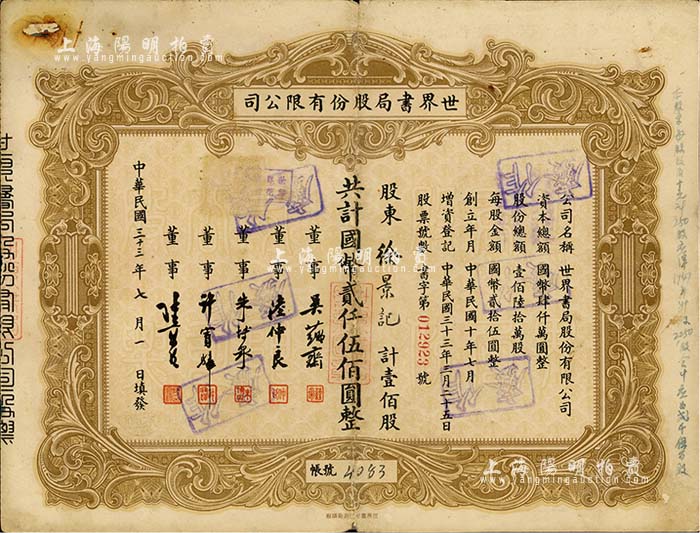 上海陽明拍賣
www.yangmingauction.com
司公限有份股局書界世
公司名稱 世界書局股份有限公司
資本總額 國幣肆仟萬圓整
股份總額 壹佰陸拾萬股
每股金額 國幣貳拾伍圓整
創立年月 中華民國十年七月
增資登記 中華民國三十三年二月二十五日
股票號數 書字第012923號
股東 徐景記 計壹佰股
共計國幣貳仟伍佰圓整
董事 吳蘊齋
董事 陸仲良
董事
董事
董事
中華民國三十三年七月一日填發
帳號 4083
上海陽明拍賣
www.yangmingauction.com
上海陽明拍賣
www.yangmingauction.com